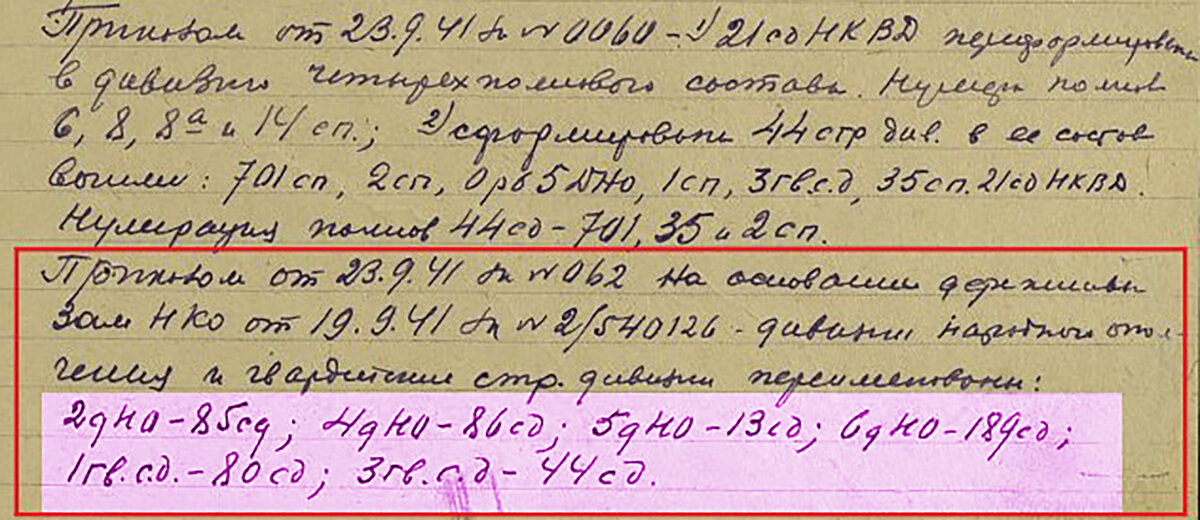 Приказом от 23.9.41 за № 0060 - 1) 21 сд НКВД переформирована
в дивизию четырехполкового состава. Нумера полков
6, 8, 8а и 14 сп.; 2) сформирована 44 стр див. в ее состав
вошли: 701 сп, 2 сп, 5 ДНО, 1 сп, 3 гв.с.д, 35 сп. 21 сд НКВД.
Нумерация полков 44 сд - 701, 35 и 2 сп.
Приказом от 23.9.41 за № 062 на основании директивы
Зам НКО от 19.9.41 за № 2/540126 - дивизии народного опол-
чения и гвардейские стр. дивизии переименованы:
2дНО-85сд; 4дНО-86сд; 5дНО-13сд; 6дНО-189сд;
1гв.с.д.-80сд; 3гв.с.д-44сд.